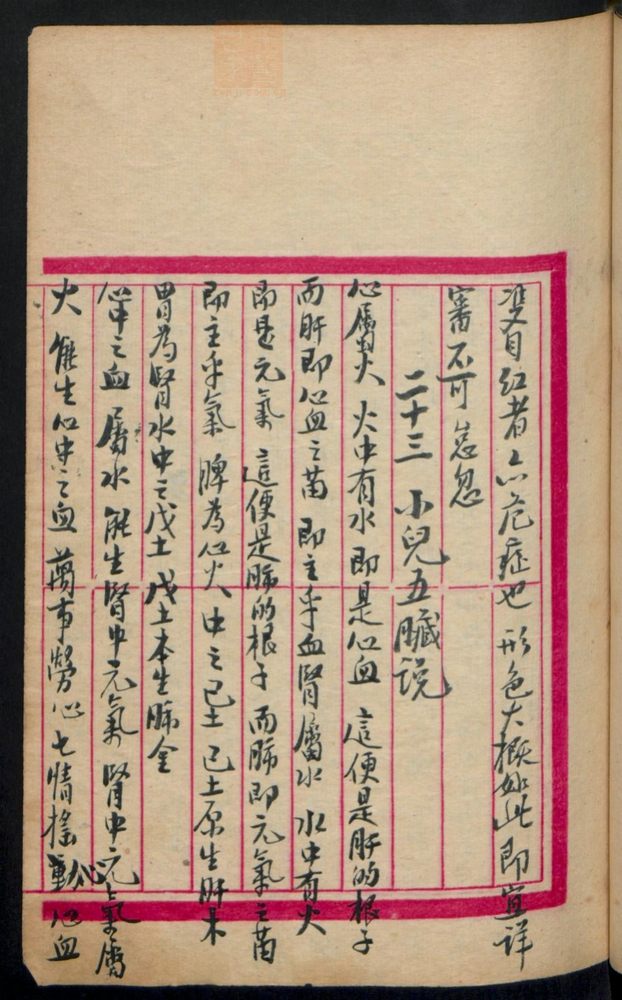 雙目紅者亦危症也 形色大概如此 即宜詳
審 不可怠忽
二十三 小兒五臟説
心屬火 火中有水 即是心血 這便是肝的根子
而肝即心血之苗 即主乎血 腎屬水 水中有火
即是元氣 這便是肺的根子 而肺即元氣之苗
即主乎氣 脾為心火中之己土 己土原生肝木
胃為腎水中之戊土 戊土本生肺金
心中之血屬水 能生腎中元氣 腎中元氣屬
火 能生心中之血 萬事勞心 七情搖動 心血